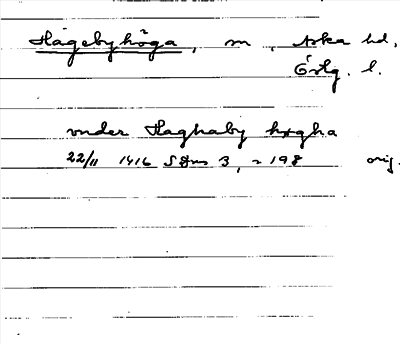 Hågebyhöga, m, Aska hd,
Östg. l.
vnder Haghaby høgha
22/11 1416 SDns 3, n 198 orig.